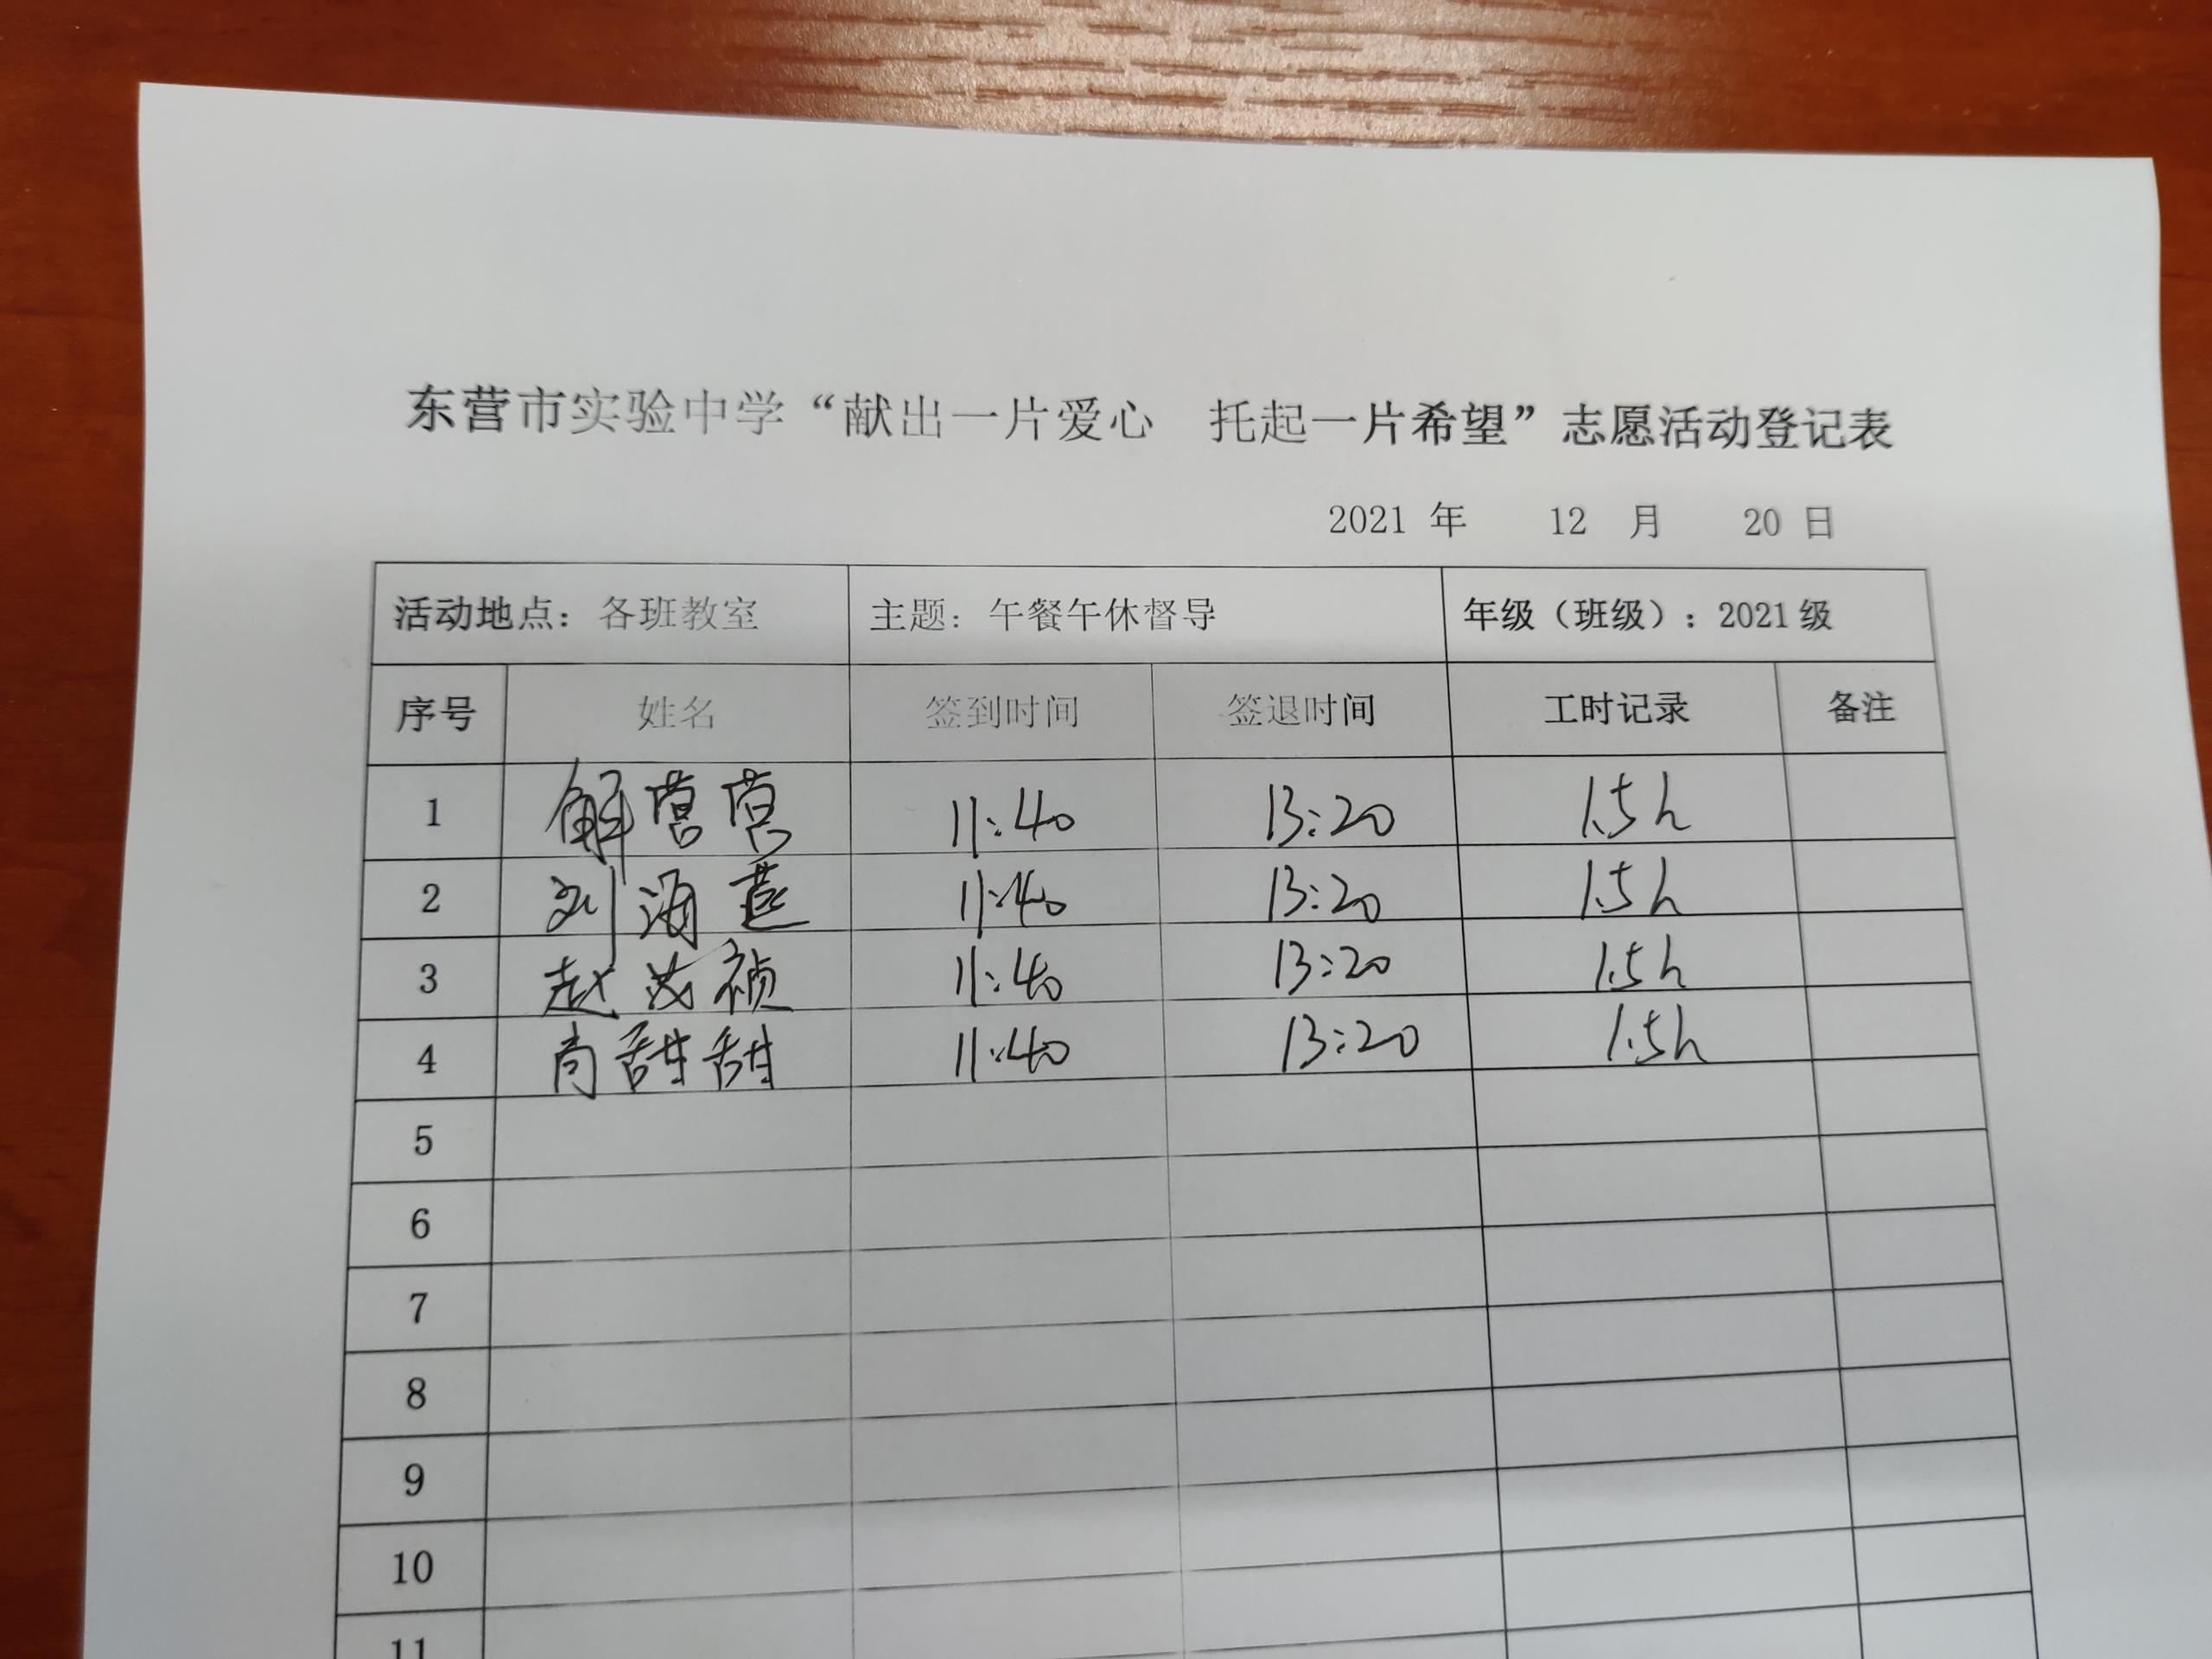 东营市实验中学“献出一片爱心 托起一片希望”志愿活动登记表
2021 年 12 月 20 日
活动地点：各班教室 主题：午餐午休督导 年级（班级）：2021级
序号 姓名 签到时间 签退时间 工时记录 备注
1 解营营 11:40 13:20 1.5h
2 刘海燕 11:40 13:20 1.5h
3 赵 祯 11:40 13:20 1.5h
4 尚甜甜 11:40 13:20 1.5h
5
6
7
8
9
10
11